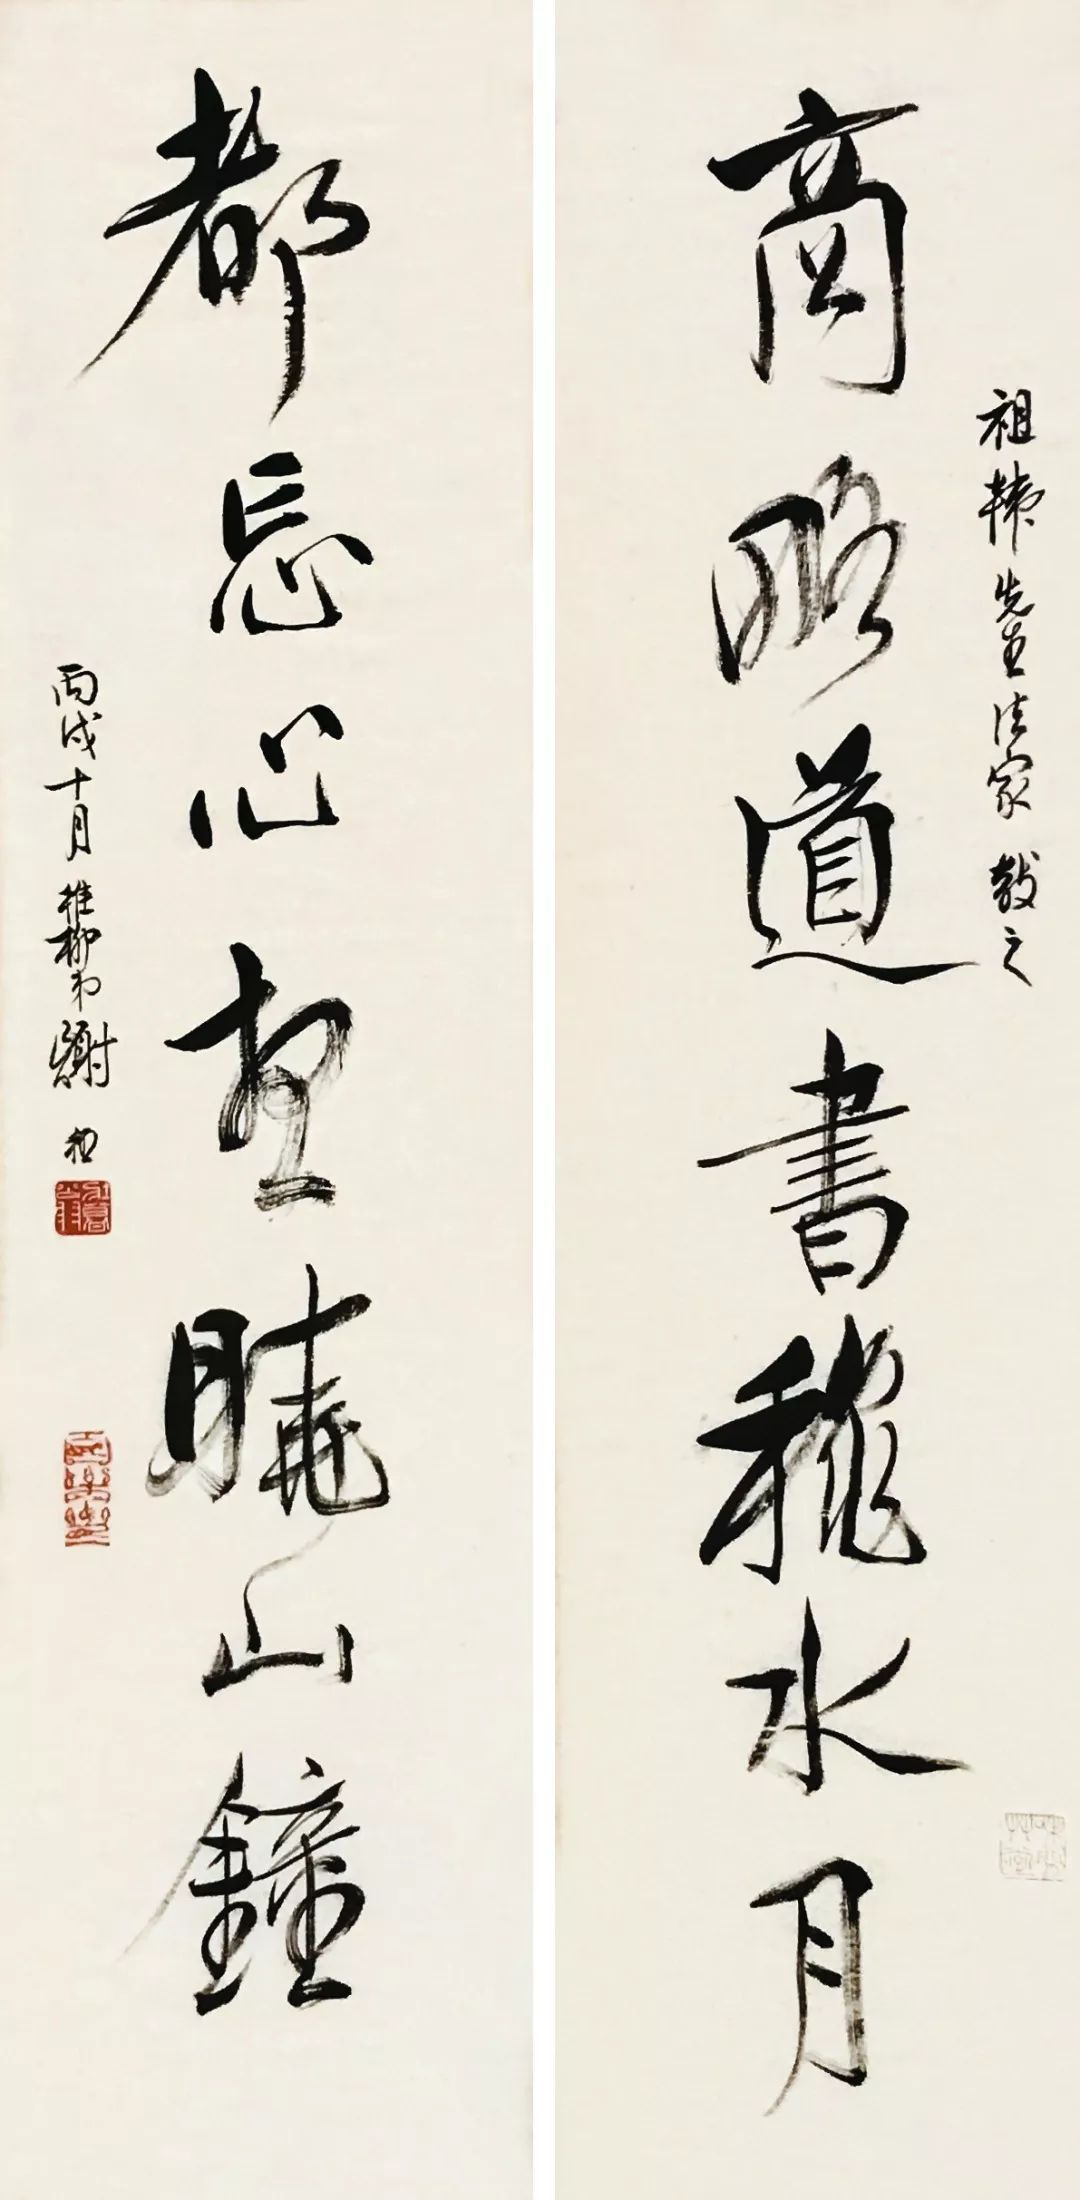 祖韓先生法家 教之
商略道書穐水月
都忘心想曉山鐘
丙戌十月 稚柳弟謝稚